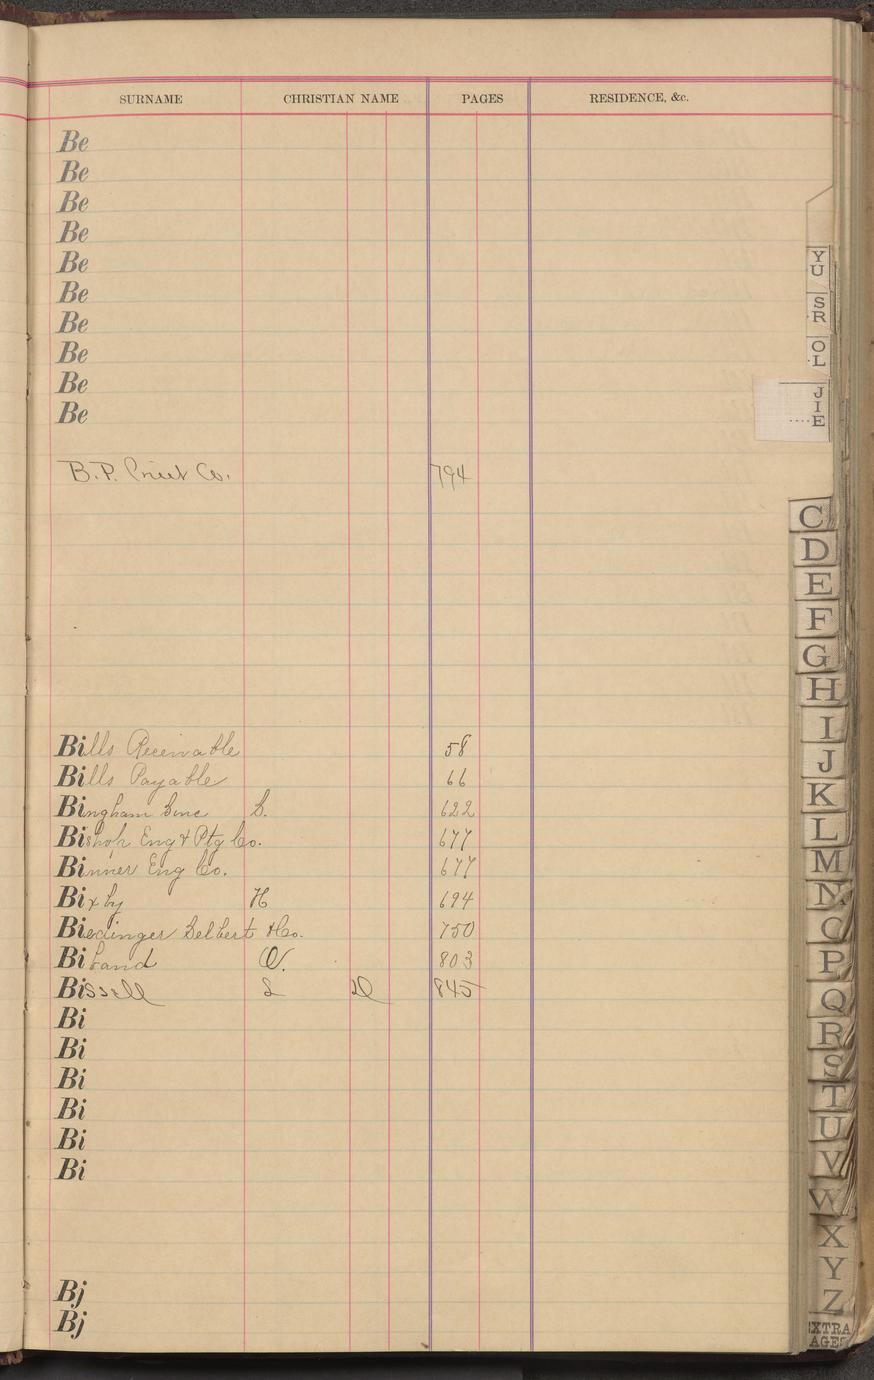 SURNAME CHRISTIAN NAME PAGES RESIDENCE, &c.
Be
Be
Be
Be
Be
Be
Be
Be
Be
Be
B.P. Co. 794
Bills Receivable 58
Bills Payable 66
Bingham S. 622
Bishop Eng & Ptg Co. 677
Binner Eng Co. 677
Bixby H 694
& Co. 750
Biland O. 803
Bissell L D 845
Bi
Bi
Bi
Bi
Bi
Bi
Bj
Bj
YU
SR
OL
JIE
C
D
E
F
G
H
I
J
K
L
M
N
O
P
Q
R
S
T
U
V
W
X
Y
Z
EXTRA